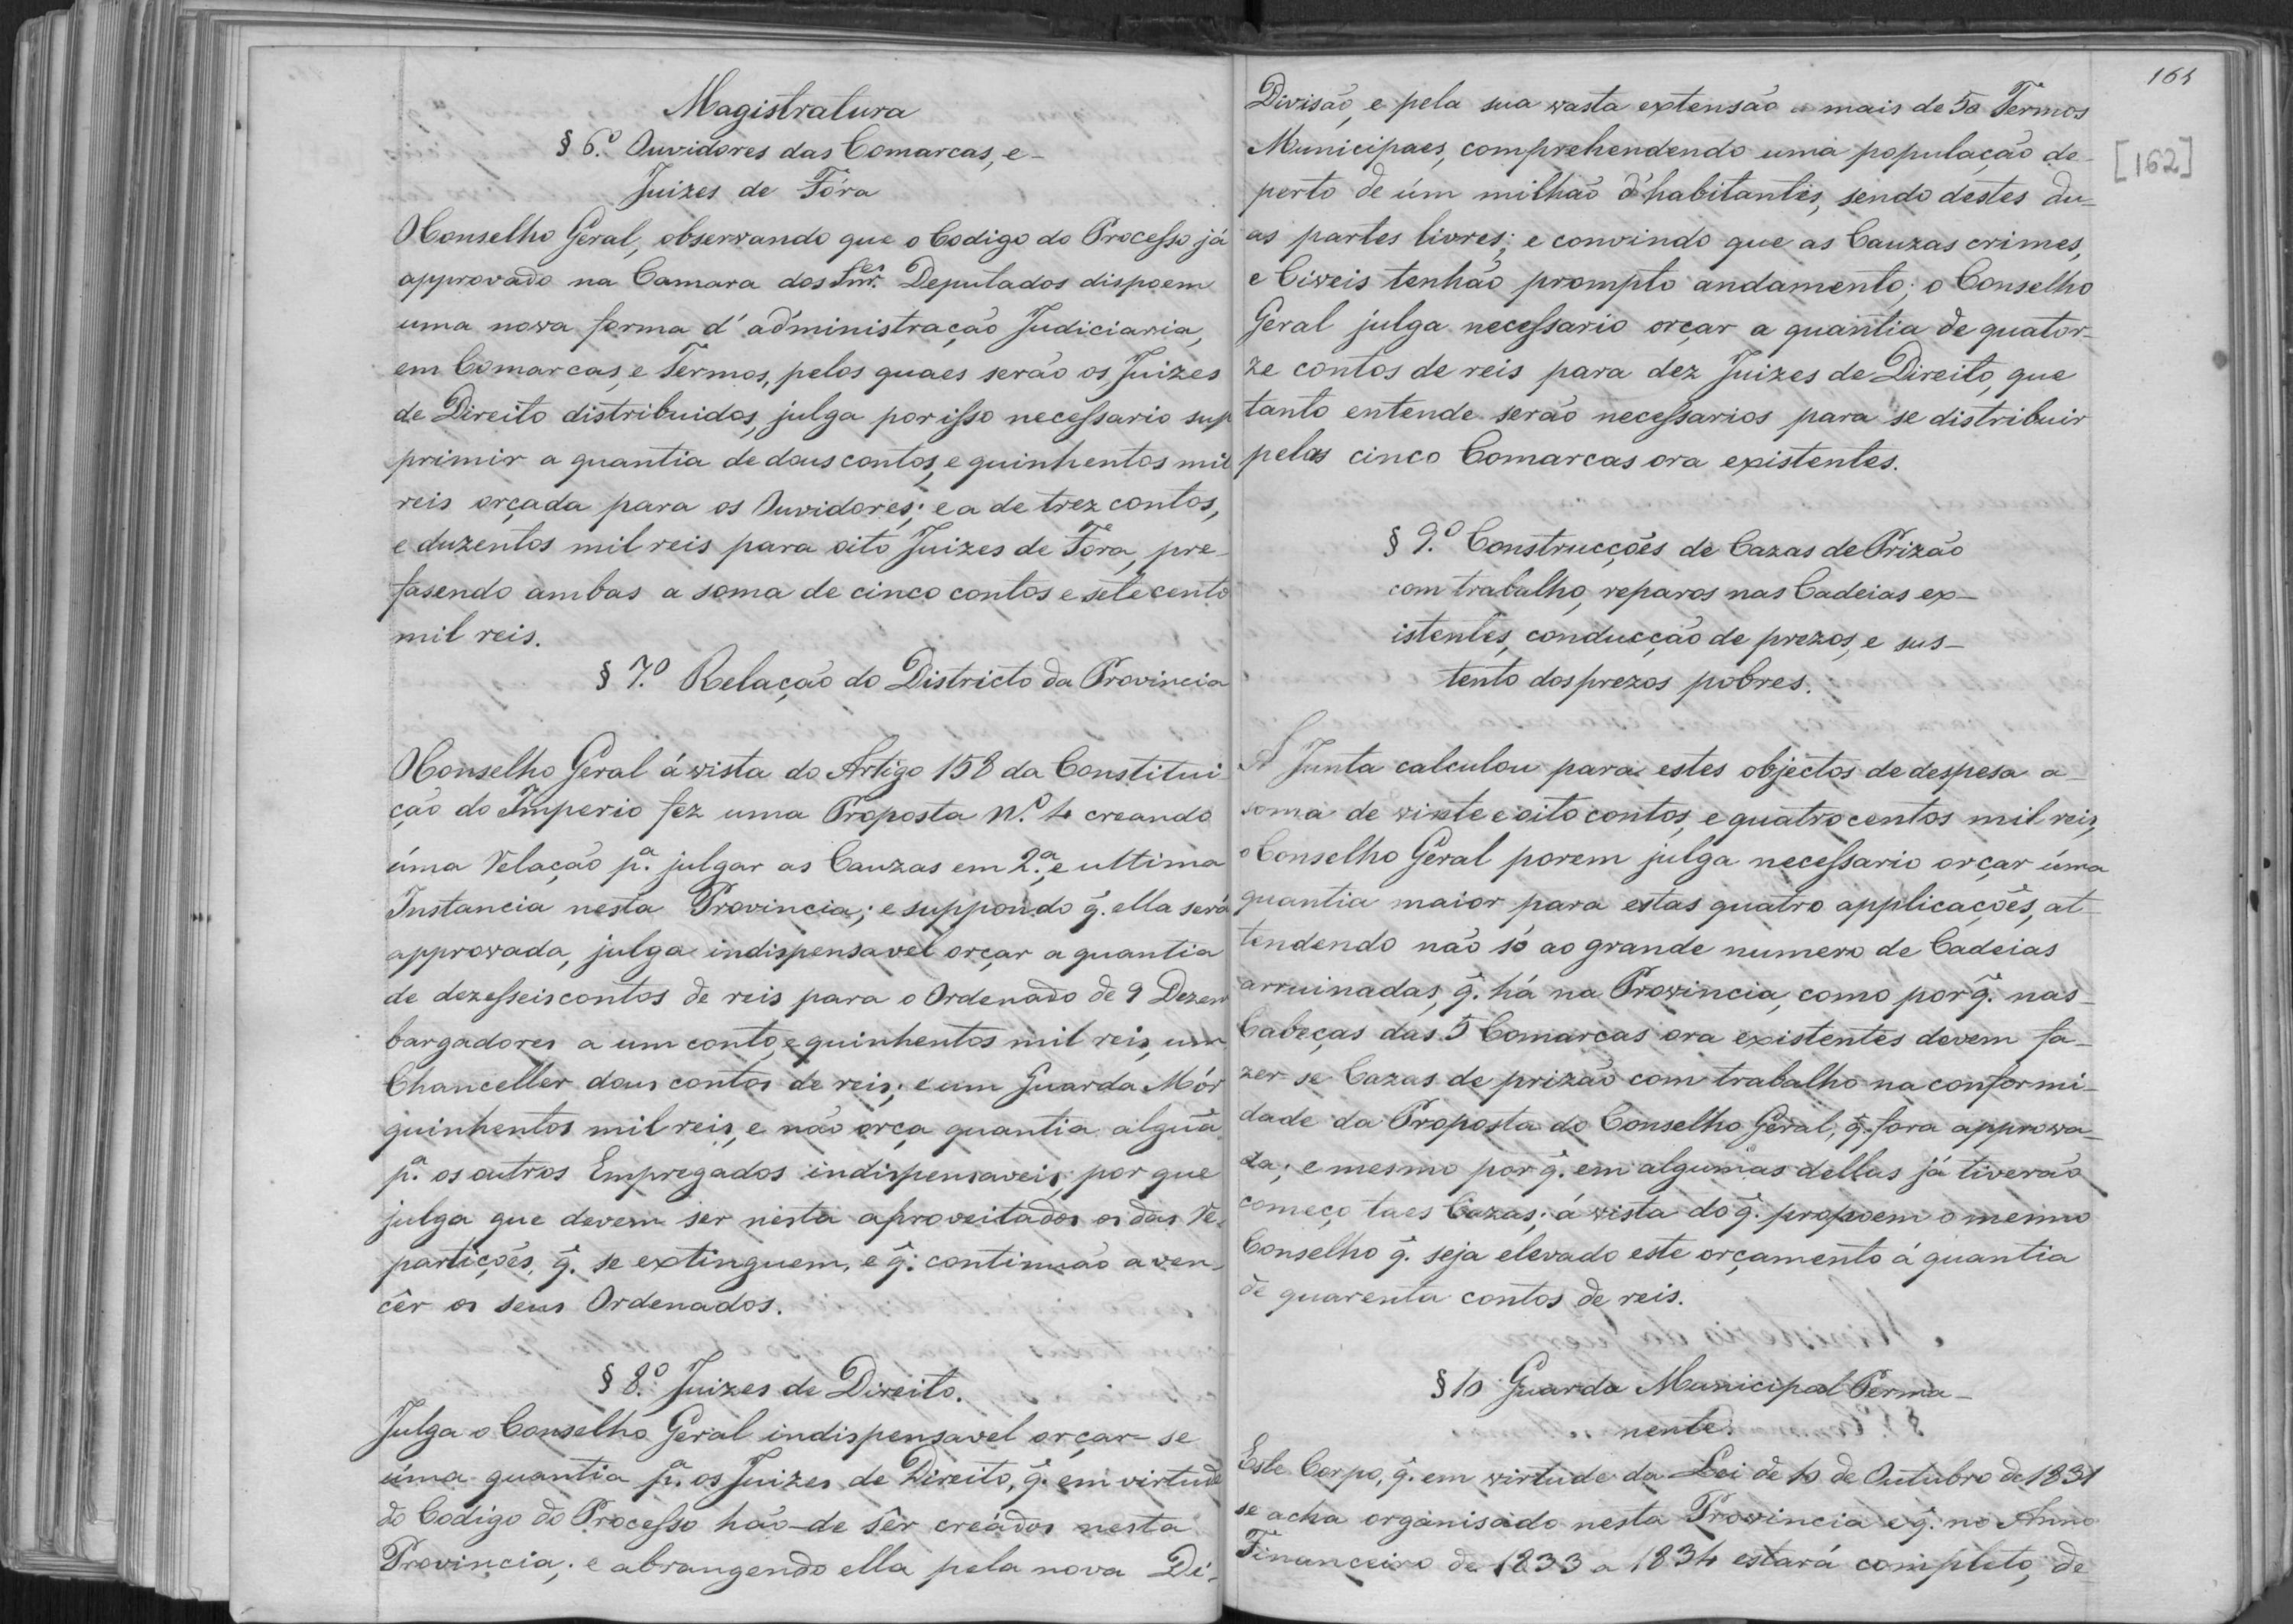 Magistratura
§ 6.º Ouvidores das Comarcas, e-
Juizes de Fóra
O Conselho Geral, observando que o Codigo do Processo já
approvado na Camara dos Snr.es Deputados dispoem
uma nova forma d'administração Judiciaria,
em Comarcas, e Termos, pelos quaes serão os Juizes
de Direito distribuidos, julga por isso necessario sup
primir a quantia de dous contos, e quinhentos mil
reis orçada para os Ouvidores; e a de trez contos,
e duzentos mil reis para oito Juizes de Fora, pre-
fasendo ambas a soma de cinco contos e sete cento
mil reis.
§ 7.º Relação do Districto da Provincia
O Conselho Geral á vista do Artigo 158 da Constitui
ção do Imperio fez uma Proposta N.º 4 creando
úma Relação p.ª julgar as Cauzas em 2.ª, e ultima
Instancia nesta Provincia; e suppondo q̃. ella será
approvada, julga indispensavel orçar a quantia
de dezesseis contos de reis para o Ordenado de 9 Dezem
bargadores a um conto, e quinhentos mil reis, um
Chanceller dous contos de reis; e um Guarda Mór
quinhentos mil reis, e não orça quantia algũa
p.ª os outros Empregados indispensaveis, por que
julga que devem ser nesta aproveitados os das Re-
partições, q̃. se extinguem, e q̃. continuão a ven-
cêr os seus Ordenados.
§ 8.º Juizes de Direito.
Julga o Conselho Geral indispensavel orçar-se
úma quantia p.ª os Juizes de Direito, q̃. em virtude
do Codigo do Processo hão-de sêr creádos nesta
Provincia; e abrangendo ella pela nova Di-
164
[162]
Divisão, e pela sua vasta extensão a mais de 50 Termos
Municipaes, comprehendendo uma população de-
perto de úm milhão d'habitantes, sendo destes du-
as partes livres; e convindo que as Cauzas crimes,
e Civeis tenhão prompto andamento; o Conselho
Geral julga necessario orçar a quantia de quator-
ze contos de reis para dez Juizes de Direito, que
tanto entende serão necessarios para se distribuir
pelas cinco Comarcas ora existentes.
§ 9.º Construcções de Cazas de Prizão
com trabalho, reparos nas Cadeias ex-
istentes, conducção de prezos, e sus-
tento dos prezos pobres.
A Junta calculou para estes objectos de despesa a-
soma de vinte e oito contos, e quatro centos mil reis,
o Conselho Geral porem julga necessario orçar úma
quantia maior para estas quatro applicações, at-
tendendo não só ao grande numero de Cadeias
arruinadas, q̃. há na Provincia, como por q̃. nas-
Cabeças das 5 Comarcas ora existentes devem fa-
zer-se Cazas de prizão com trabalho na conformi-
dade da Proposta do Conselho Geral, q̃. fora approva-
da; e mesmo por q̃. em algumas dellas já tiverão
começo taes Cazas; á vista do q̃. propoem o mesmo
Conselho q̃. seja elevado este orçamento á quantia
de quarenta contos de reis.
§ 10 Guarda Municipal Perma-
nente.
Este Corpo, q̃. em virtude da Lei de 10 de Outubro de 1831
se acha organisado nesta Provincia e q̃. no Anno
Financeiro de 1833 a 1834 estará completo, de